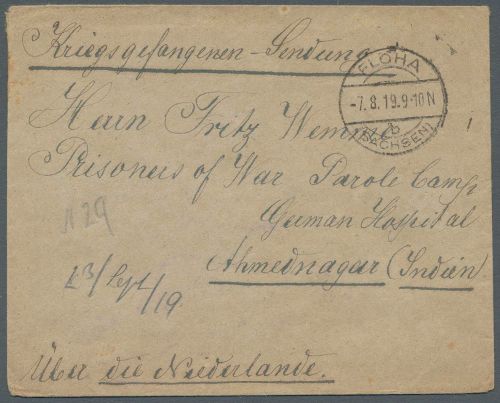 Kriegsgefangenen-Sendung
FLÖHA
-7.8.19.9-10N
b
(SACHSEN)
Herrn Fritz
Prisoners of War Parole Camp
German Hospital
Ahmednagar (Indien)
N 29
23/Sept/19
Über die Niederlande.